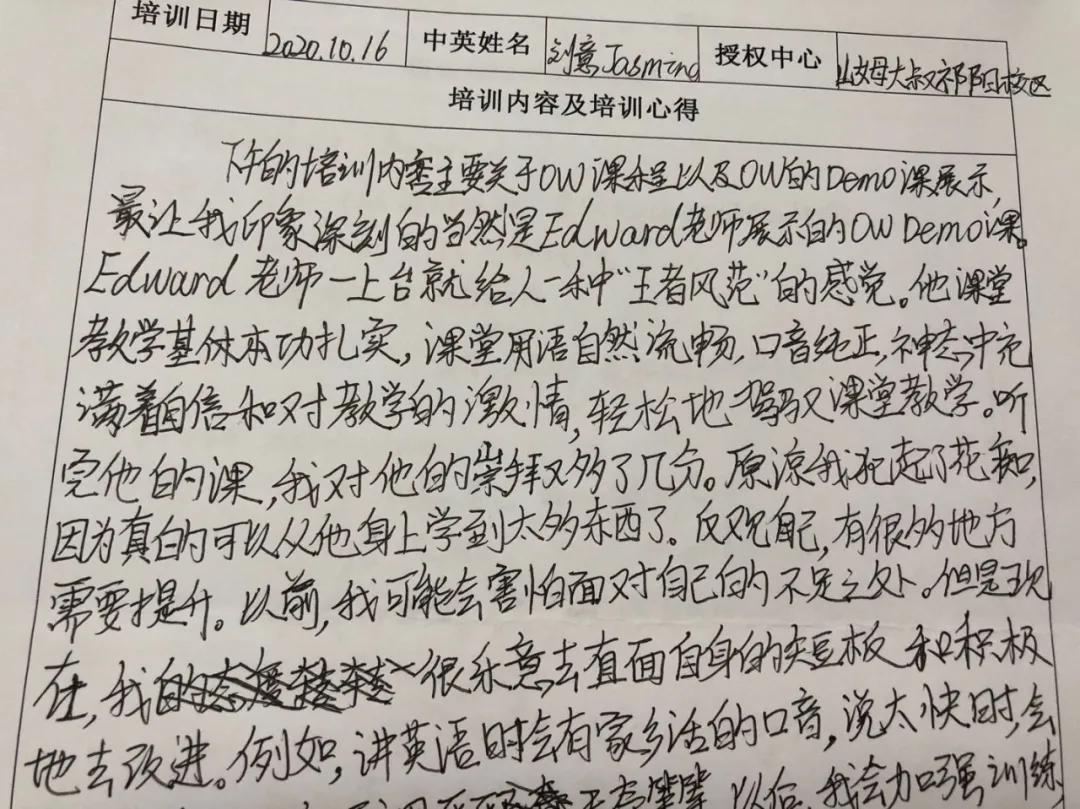 培训日期 2020.10.16 中英姓名 刘意Jasmine 授权中心 山姆大叔祁阳校区
培训内容及培训心得
下午的培训内容主要关于OW课程以及OW的Demo课展示,
最让我印象深刻的当然是Edward老师展示的OW Demo课。
Edward老师一上台就给人一种“王者风范”的感觉。他课堂
教学基体本功扎实,课堂用语自然流畅,口音纯正,神态中充
满着自信和对教学的激情,轻松地驾驭课堂教学。听
完他的课,我对他的崇拜又多了几分。原谅我犯起了花痴,
因为真的可以从他身上学到太多东西了。反观自己,有很多地方
需要提升。以前,我可能会害怕面对自己的不足之处。但是现
在,我很乐意去直面自身的短板和积极
地去改进。例如,讲英语时会有家乡话的口音,说太快时,会
以后,我会加强训练